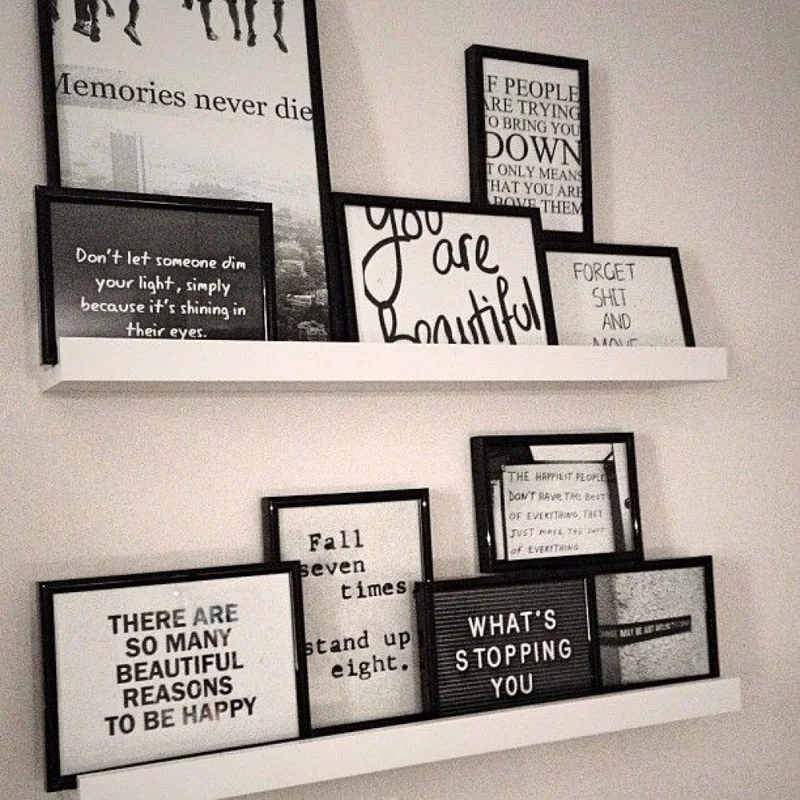 Memories never die
IF PEOPLE
ARE TRYING
TO BRING YOU
DOWN
IT ONLY MEANS
THAT YOU ARE
ABOVE THEM
Don't let someone dim
your light, simply
because it's shining in
their eyes.
you
are
beautiful
FORGET
SHIT
AND
MOVE
THE HAPPIEST PEOPLE
DON'T HAVE THE BEST
OF EVERYTHING, THEY
JUST MAKE THE BEST
OF EVERYTHING
Fall
seven
times,
stand up
eight.
THERE ARE
SO MANY
BEAUTIFUL
REASONS
TO BE HAPPY
WHAT'S
STOPPING
YOU
MAY BE JUST AROUND THE